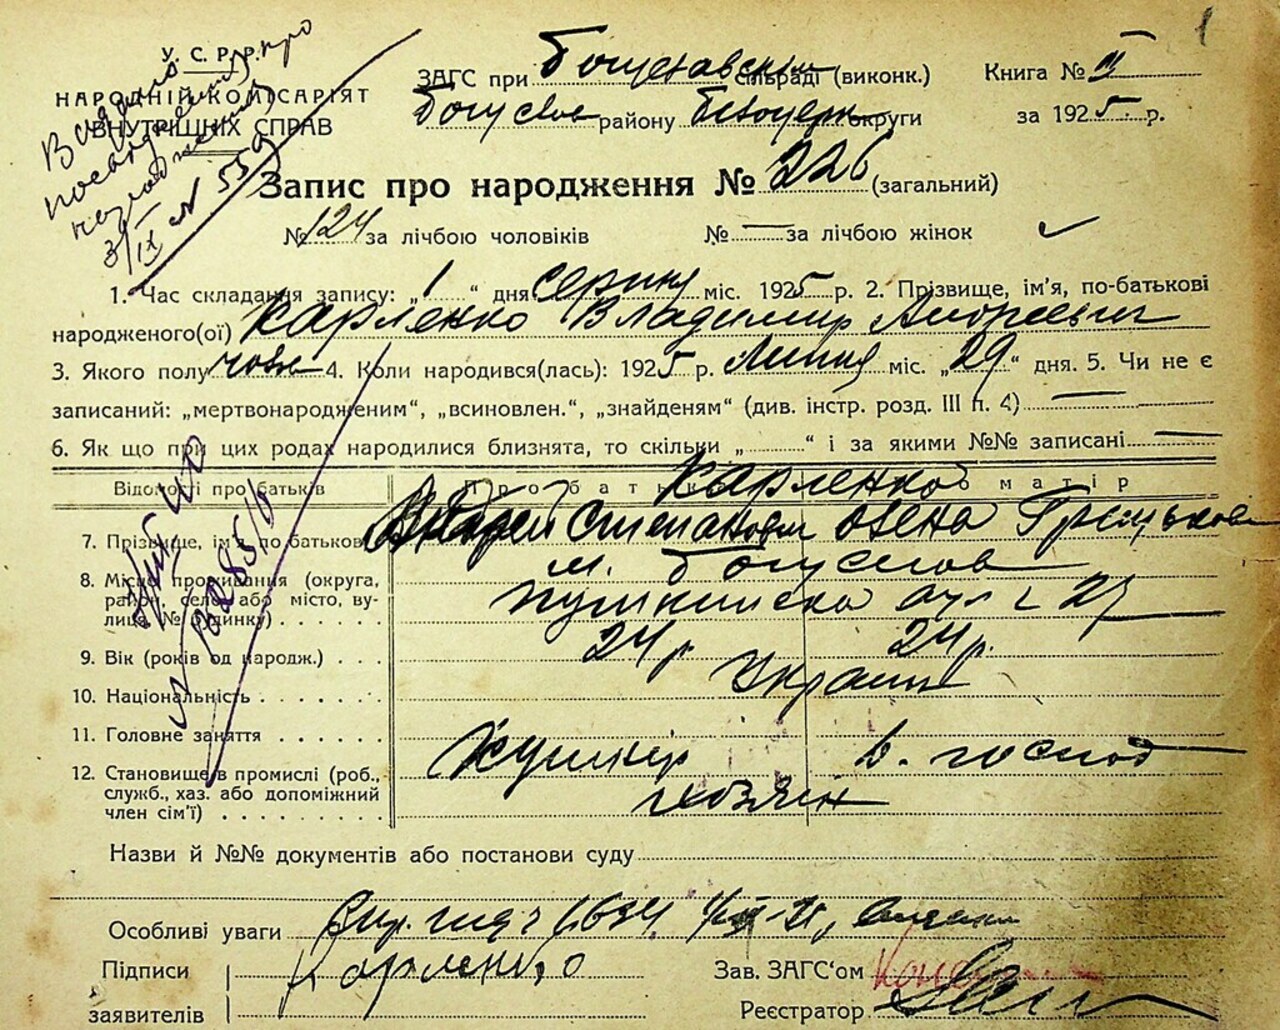 У. С. Р. Р.
НАРОДНІЙ КОМІСАРІЯТ
ВНУТРІШНІХ СПРАВ
Видано про
народження
3/IX № 559
1
ЗАГС при Богуславськ сільраді (виконк.) Книга № II
Богуслав району Білоцерк округи за 1925 р.
Запис про народження № 226 (загальний)
№ 124 за лічбою чоловіків № — за лічбою жінок
1. Час складання запису: „1“ дня серпня міс. 1925 р. 2. Прізвище, ім'я, по-батькові
народженого(ої) Карленко Владимир Андреевич
3. Якого полу чолов 4. Коли народився(лась): 1925 р. Липня міс. „29“ дня. 5. Чи не є
записаний: „мертвонародженим“, „всиновлен.“, „знайденям“ (див. інстр. розд. III п. 4) —
6. Як що при цих родах народилися близнята, то скільки „ “ і за якими №№ записані —
Відомості про батьків Про батька Про матір
Карленко
7. Прізвище, ім'я, по-батькові Андрей Степанович Олена
8. Місце проживання (округа, район, село або місто, вулиця, № будинку) м. Богуслав
Пушкинска вул 27
9. Вік (років од народж.) 24 р. 24 р.
10. Національність Украін
11. Головне заняття Кушнір в. господ
12. Становище в промислі (роб., служб., хаз. або допоміжний член сім'ї) хозяін
Назви й №№ документів або постанови суду
Особливі уваги
Підписи Карленко Зав. ЗАГС‘ом
заявителів Реєстратор